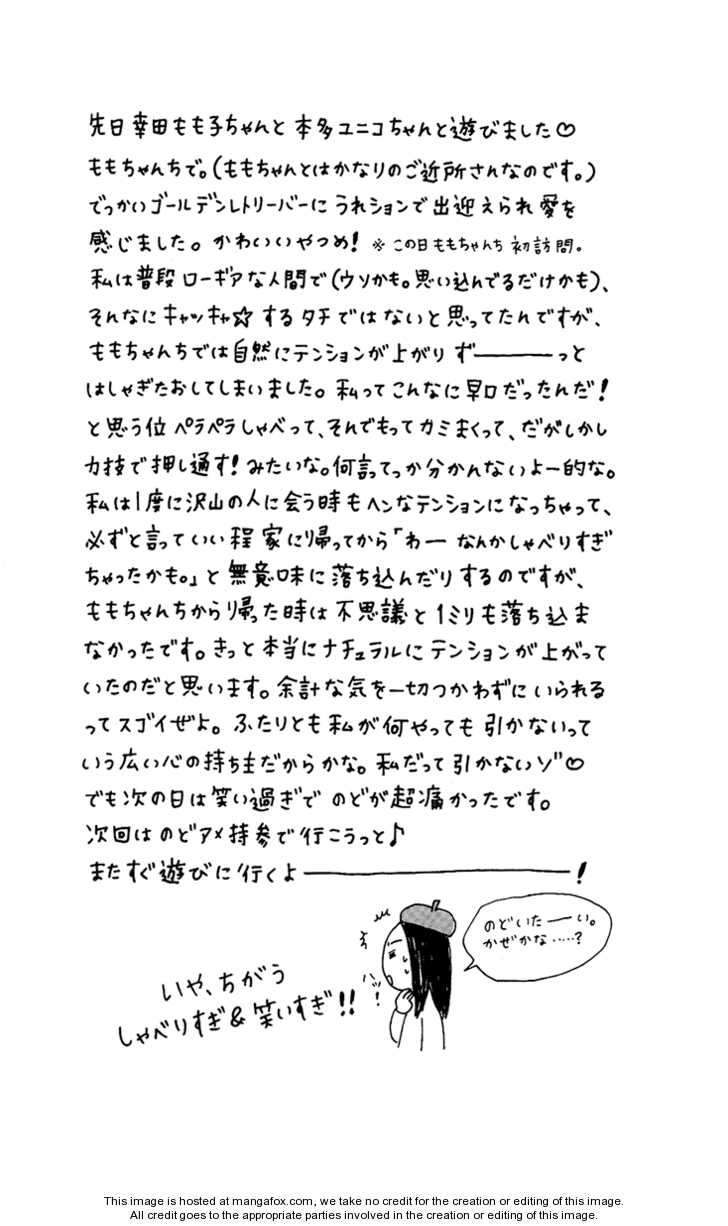 先日幸田もも子ちゃんと本多ユニコちゃんと遊びました♡
ももちゃんちで。(ももちゃんとはかなりのご近所さんなのです。)
でっかいゴールデンレトリーバーにうれションで出迎えられ愛を
感じました。かわいいやつめ! ※この日ももちゃんち初訪問。
私は普段ローギアな人間で(ウソかも。思い込んでるだけかも)、
そんなにキャッキャ☆するタチではないと思ってたんですが、
ももちゃんちでは自然にテンションが上がりずーーーっと
はしゃぎたおしてしまいました。私ってこんなに早口だったんだ!
と思う位ペラペラしゃべって、そんでもってカミまくって、だがしかし
力技で押し通す!みたいな。何言ってっか分かんないよー的な。
私は1度に沢山の人に会う時もヘンなテンションになっちゃって、
必ずと言っていい程家に帰ってから「わー なんかしゃべりすぎ
ちゃったかも。」と無意味に落ち込んだりするのですが、
ももちゃんちから帰った時は不思議と1ミリも落ち込ま
なかったです。きっと本当にナチュラルにテンションが上がって
いたのだと思います。余計な気を一切つかわずにいられる
ってスゴイぜよ。ふたりとも私が何やっても引かないって
いう広い心の持ち主だからかな。私だって引かないゾ♡
でも次の日は笑い過ぎでのどが超痛かったです。
次回はのどアメ持参で行こうっと♪
またすぐ遊びに行くよーーーーーー!
のどいたーーい。
かぜかな……?
ハッ!
いや、ちがう
しゃべりすぎ&笑いすぎ!!
This image is hosted at mangafox.com, we take no credit for the creation or editing of this image.
All credit goes to the appropriate parties involved in the creation or editing of this image.